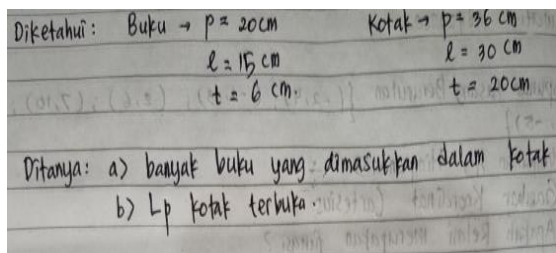 Diketahui: Buku → p = 20 cm Kotak → p = 36 cm
l = 15 cm l = 30 cm
t = 6 cm. t = 20 cm
Ditanya: a) banyak buku yang dimasukkan dalam kotak
b) Lp kotak terbuka.